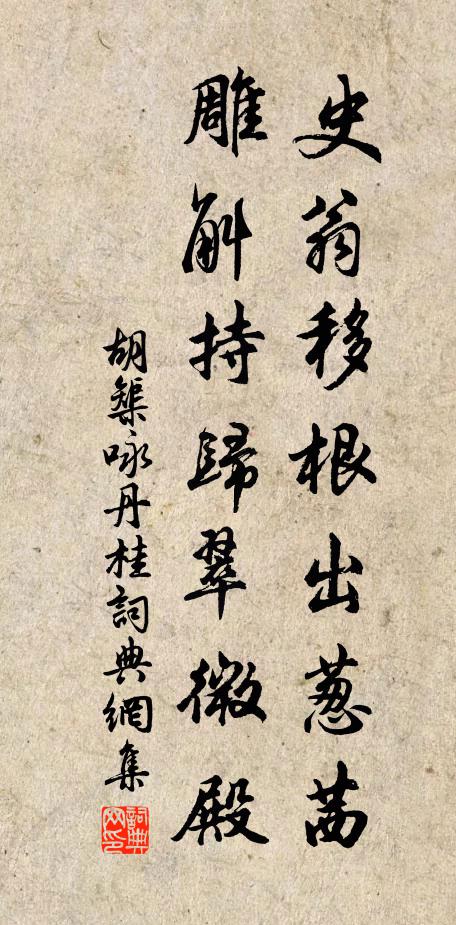 史翁移根出葱茜
雕斛持歸翠微殿
胡榘咏丹桂詞典網集
詞典網印